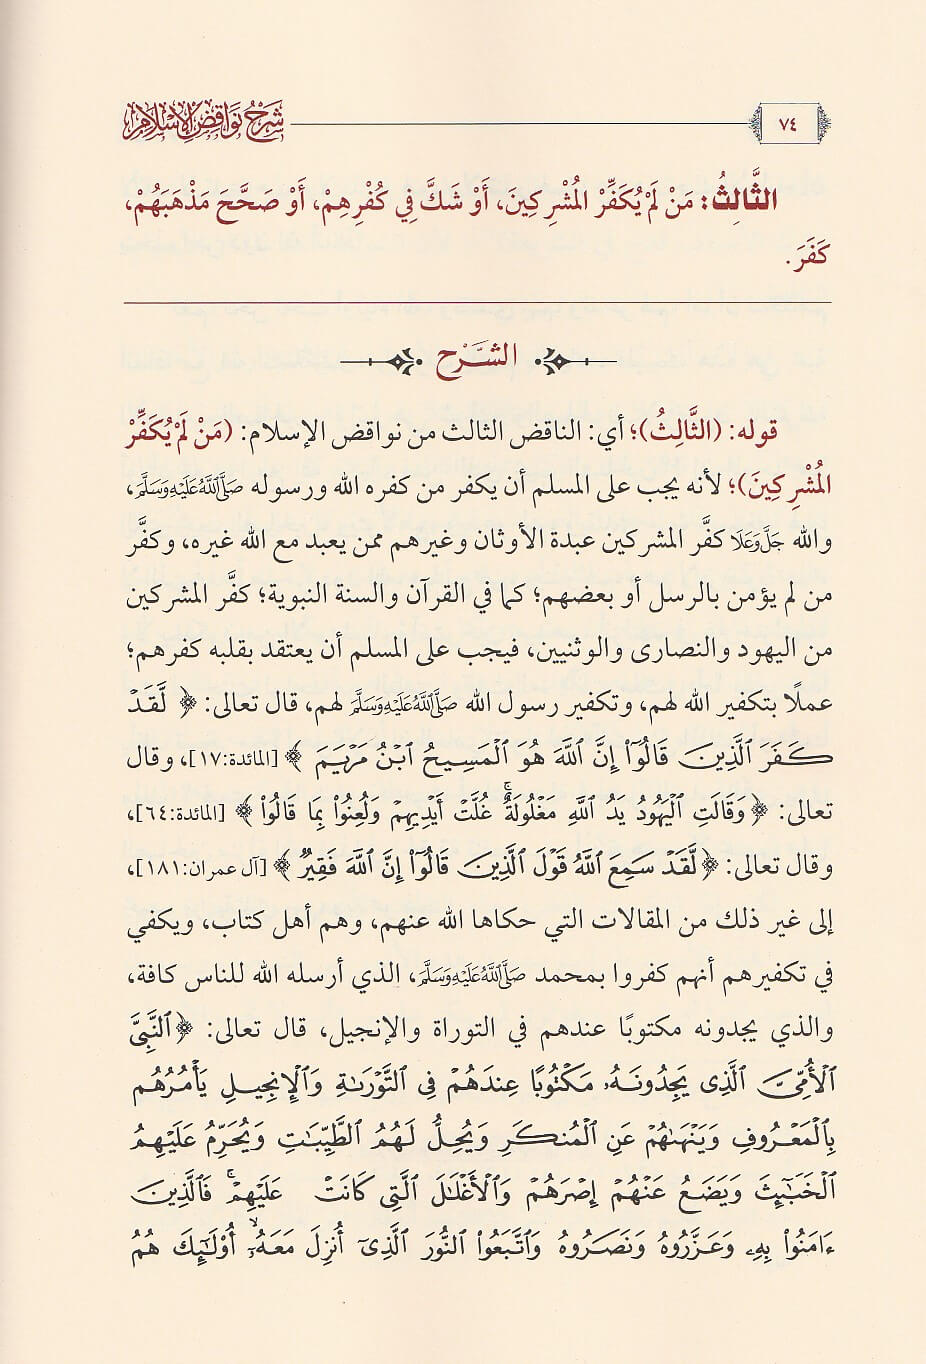 ٧٤
شرح نواقض الإسلام
الثَّالِثُ: مَنْ لَمْ يُكَفِّرْ المُشْرِكِينَ، أَوْ شَكَّ فِي كُفْرِهِمْ، أَوْ صَحَّحَ مَذْهَبَهُمْ،
كَفَرَ.
الشَّرْح
قوله: (الثَّالِثُ)؛ أي: الناقض الثالث من نواقض الإسلام: (مَنْ لَمْ يُكَفِّرْ
المُشْرِكِينَ)؛ لأنه يجب على المسلم أن يكفر من كفره الله ورسوله صَلَّى اللَّهُ عَلَيْهِ وَسَلَّمَ،
والله جَلَّ وَعَلَا كفَّر المشركين عبدة الأوثان وغيرهم ممن يعبد مع الله غيره، وكفَّر
من لم يؤمن بالرسل أو بعضهم؛ كما في القرآن والسنة النبوية؛ كفَّر المشركين
من اليهود والنصارى والوثنيين، فيجب على المسلم أن يعتقد بقلبه كفرهم؛
عملًا بتكفير الله لهم، وتكفير رسول الله صَلَّى اللَّهُ عَلَيْهِ وَسَلَّمَ لهم، قال تعالى: ﴿ لَّقَدۡ
كَفَرَ ٱلَّذِينَ قَالُوٓاْ إِنَّ ٱللَّهَ هُوَ ٱلۡمَسِيحُ ٱبۡنُ مَرۡيَمَ ﴾ [المائدة:١٧]، وقال
تعالى: ﴿ وَقَالَتِ ٱلۡيَهُودُ يَدُ ٱللَّهِ مَغۡلُولَةٌۚ غُلَّتۡ أَيۡدِيهِمۡ وَلُعِنُواْ بِمَا قَالُواْ ﴾ [المائدة:٦٤]،
وقال تعالى: ﴿ لَّقَدۡ سَمِعَ ٱللَّهُ قَوۡلَ ٱلَّذِينَ قَالُوٓاْ إِنَّ ٱللَّهَ فَقِيرٌ ﴾ [آل عمران:١٨١]،
إلى غير ذلك من المقالات التي حكاها الله عنهم، وهم أهل كتاب، ويكفي
في تكفيرهم أنهم كفروا بمحمد صَلَّى اللَّهُ عَلَيْهِ وَسَلَّمَ، الذي أرسله الله للناس كافة،
والذي يجدونه مكتوبًا عندهم في التوراة والإنجيل، قال تعالى: ﴿ ٱلنَّبِيَّ
ٱلۡأُمِّيَّ ٱلَّذِي يَجِدُونَهُۥ مَكۡتُوبًا عِندَهُمۡ فِي ٱلتَّوۡرَىٰةِ وَٱلۡإِنجِيلِ يَأۡمُرُهُم
بِٱلۡمَعۡرُوفِ وَيَنۡهَىٰهُمۡ عَنِ ٱلۡمُنكَرِ وَيُحِلُّ لَهُمُ ٱلطَّيِّبَٰتِ وَيُحَرِّمُ عَلَيۡهِمُ
ٱلۡخَبَٰٓئِثَ وَيَضَعُ عَنۡهُمۡ إِصۡرَهُمۡ وَٱلۡأَغۡلَٰلَ ٱلَّتِي كَانَتۡ عَلَيۡهِمۡۚ فَٱلَّذِينَ
ءَامَنُواْ بِهِۦ وَعَزَّرُوهُ وَنَصَرُوهُ وَٱتَّبَعُواْ ٱلنُّورَ ٱلَّذِيٓ أُنزِلَ مَعَهُۥٓۙ أُوْلَٰٓئِكَ هُمُ